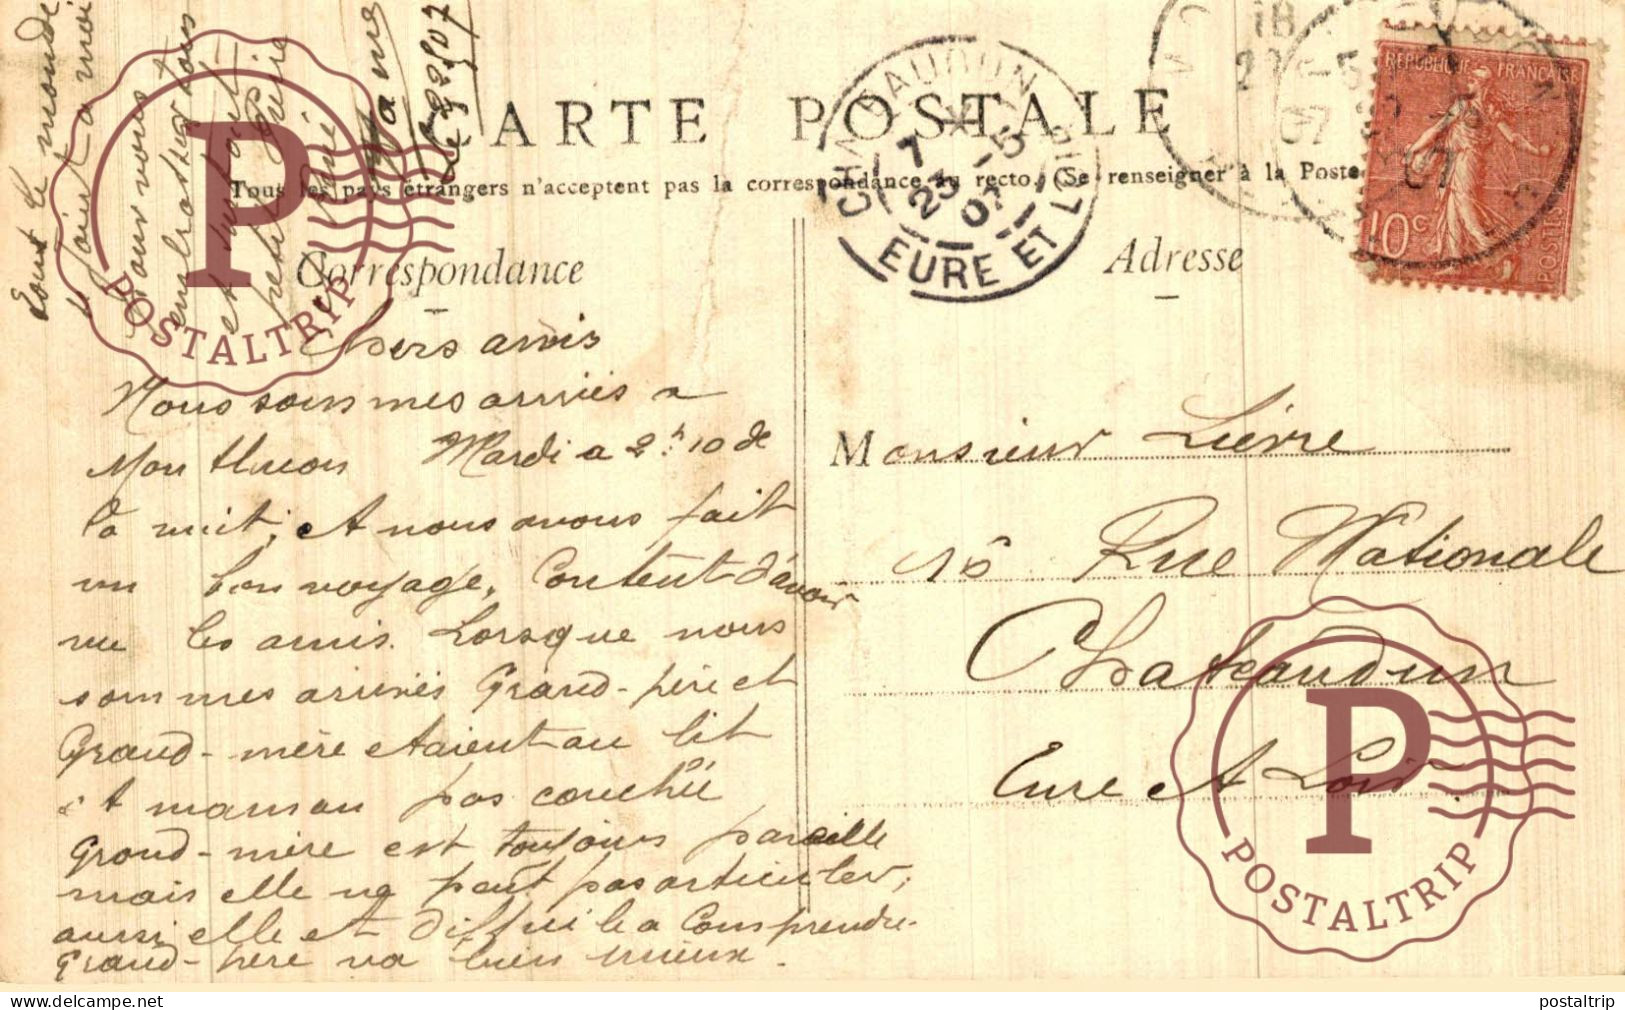 CARTE POSTALE
Tous les pays étrangers n'acceptent pas la correspondance au recto. (Se renseigner à la Poste
Correspondance
Adresse
Chers amis
Nous sommes arrivés a
Montlucon Mardi a 2h.10 de
la nuit, et nous avons fait
un bon voyage, Content d'avoir
vu les amis. Lorsque nous
sommes arrivés Grand-père et
Grand-mère etaient au lit
et maman pas couchée
Grand-mère est toujours pareille
mais elle ne peut pas articuler,
aussi elle et difficile a Comprendre.
Grand-père va bien mieux.
Tout le monde
se joint a moi
pour vous
embrasser tous
et surtout
petit Pierre
le 22 5 07
Monsieur Lièvre
16 Rue Nationale
Chateaudun
Eure et Loir.
CHATEAUDUN
7
23 -5
07
EURE ET LOIR
RÉPUBLIQUE FRANÇAISE
10c
POSTES
P
POSTALTRIP
P
POSTALTRIP
www.delcampe.net
postaltrip